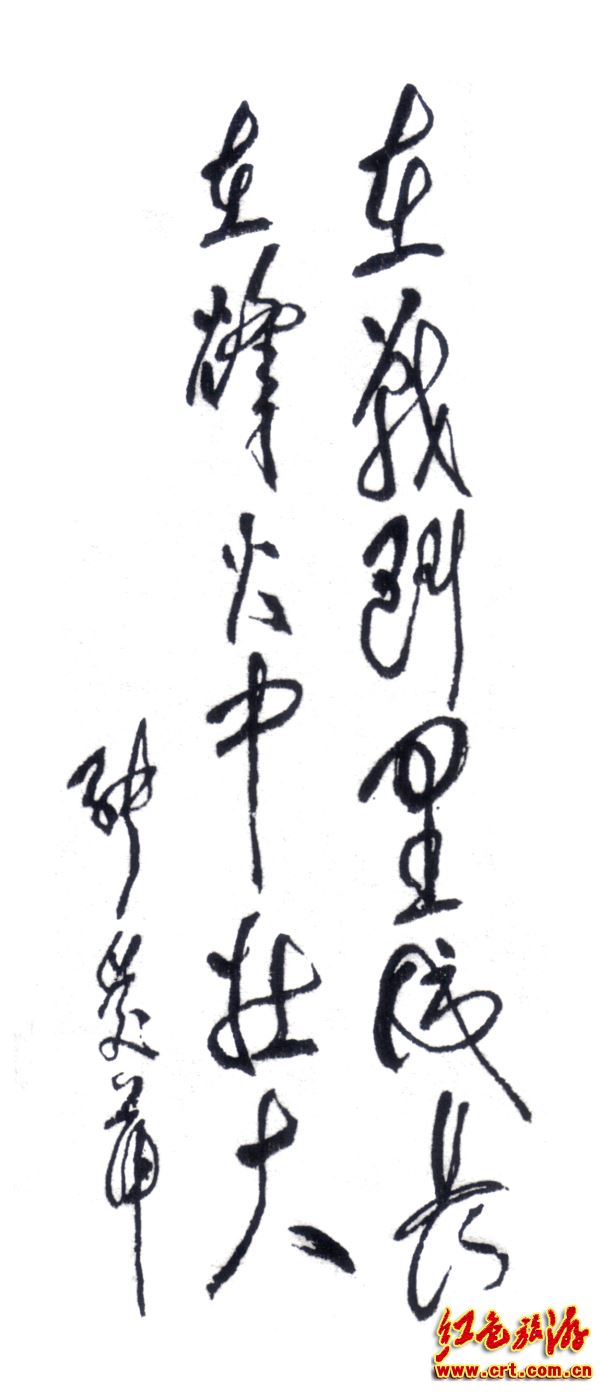 在战斗里成长
在烽火中壮大
红色旅游
www.crt.com.cn